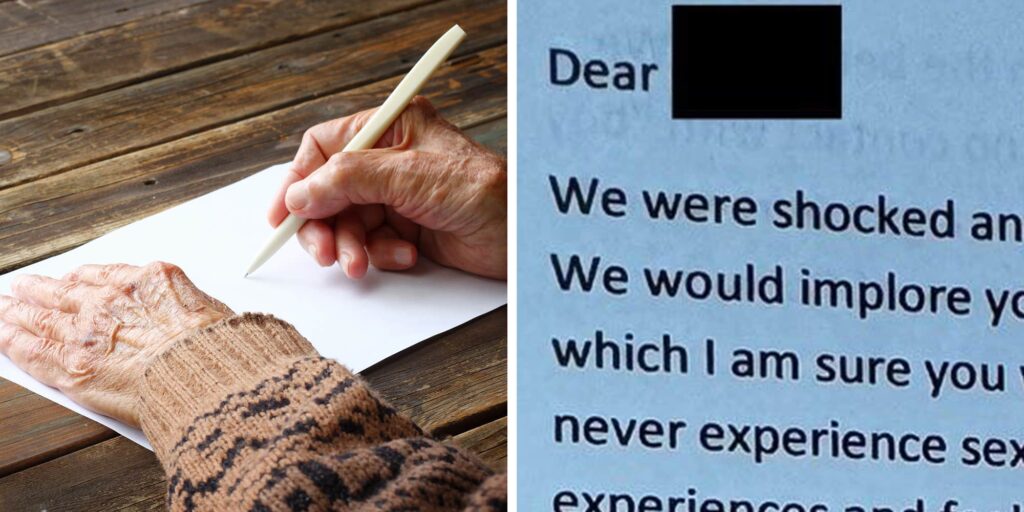 Dear
We were shocked an
We would implore yo
which I am sure you
never experience sex
experiences and